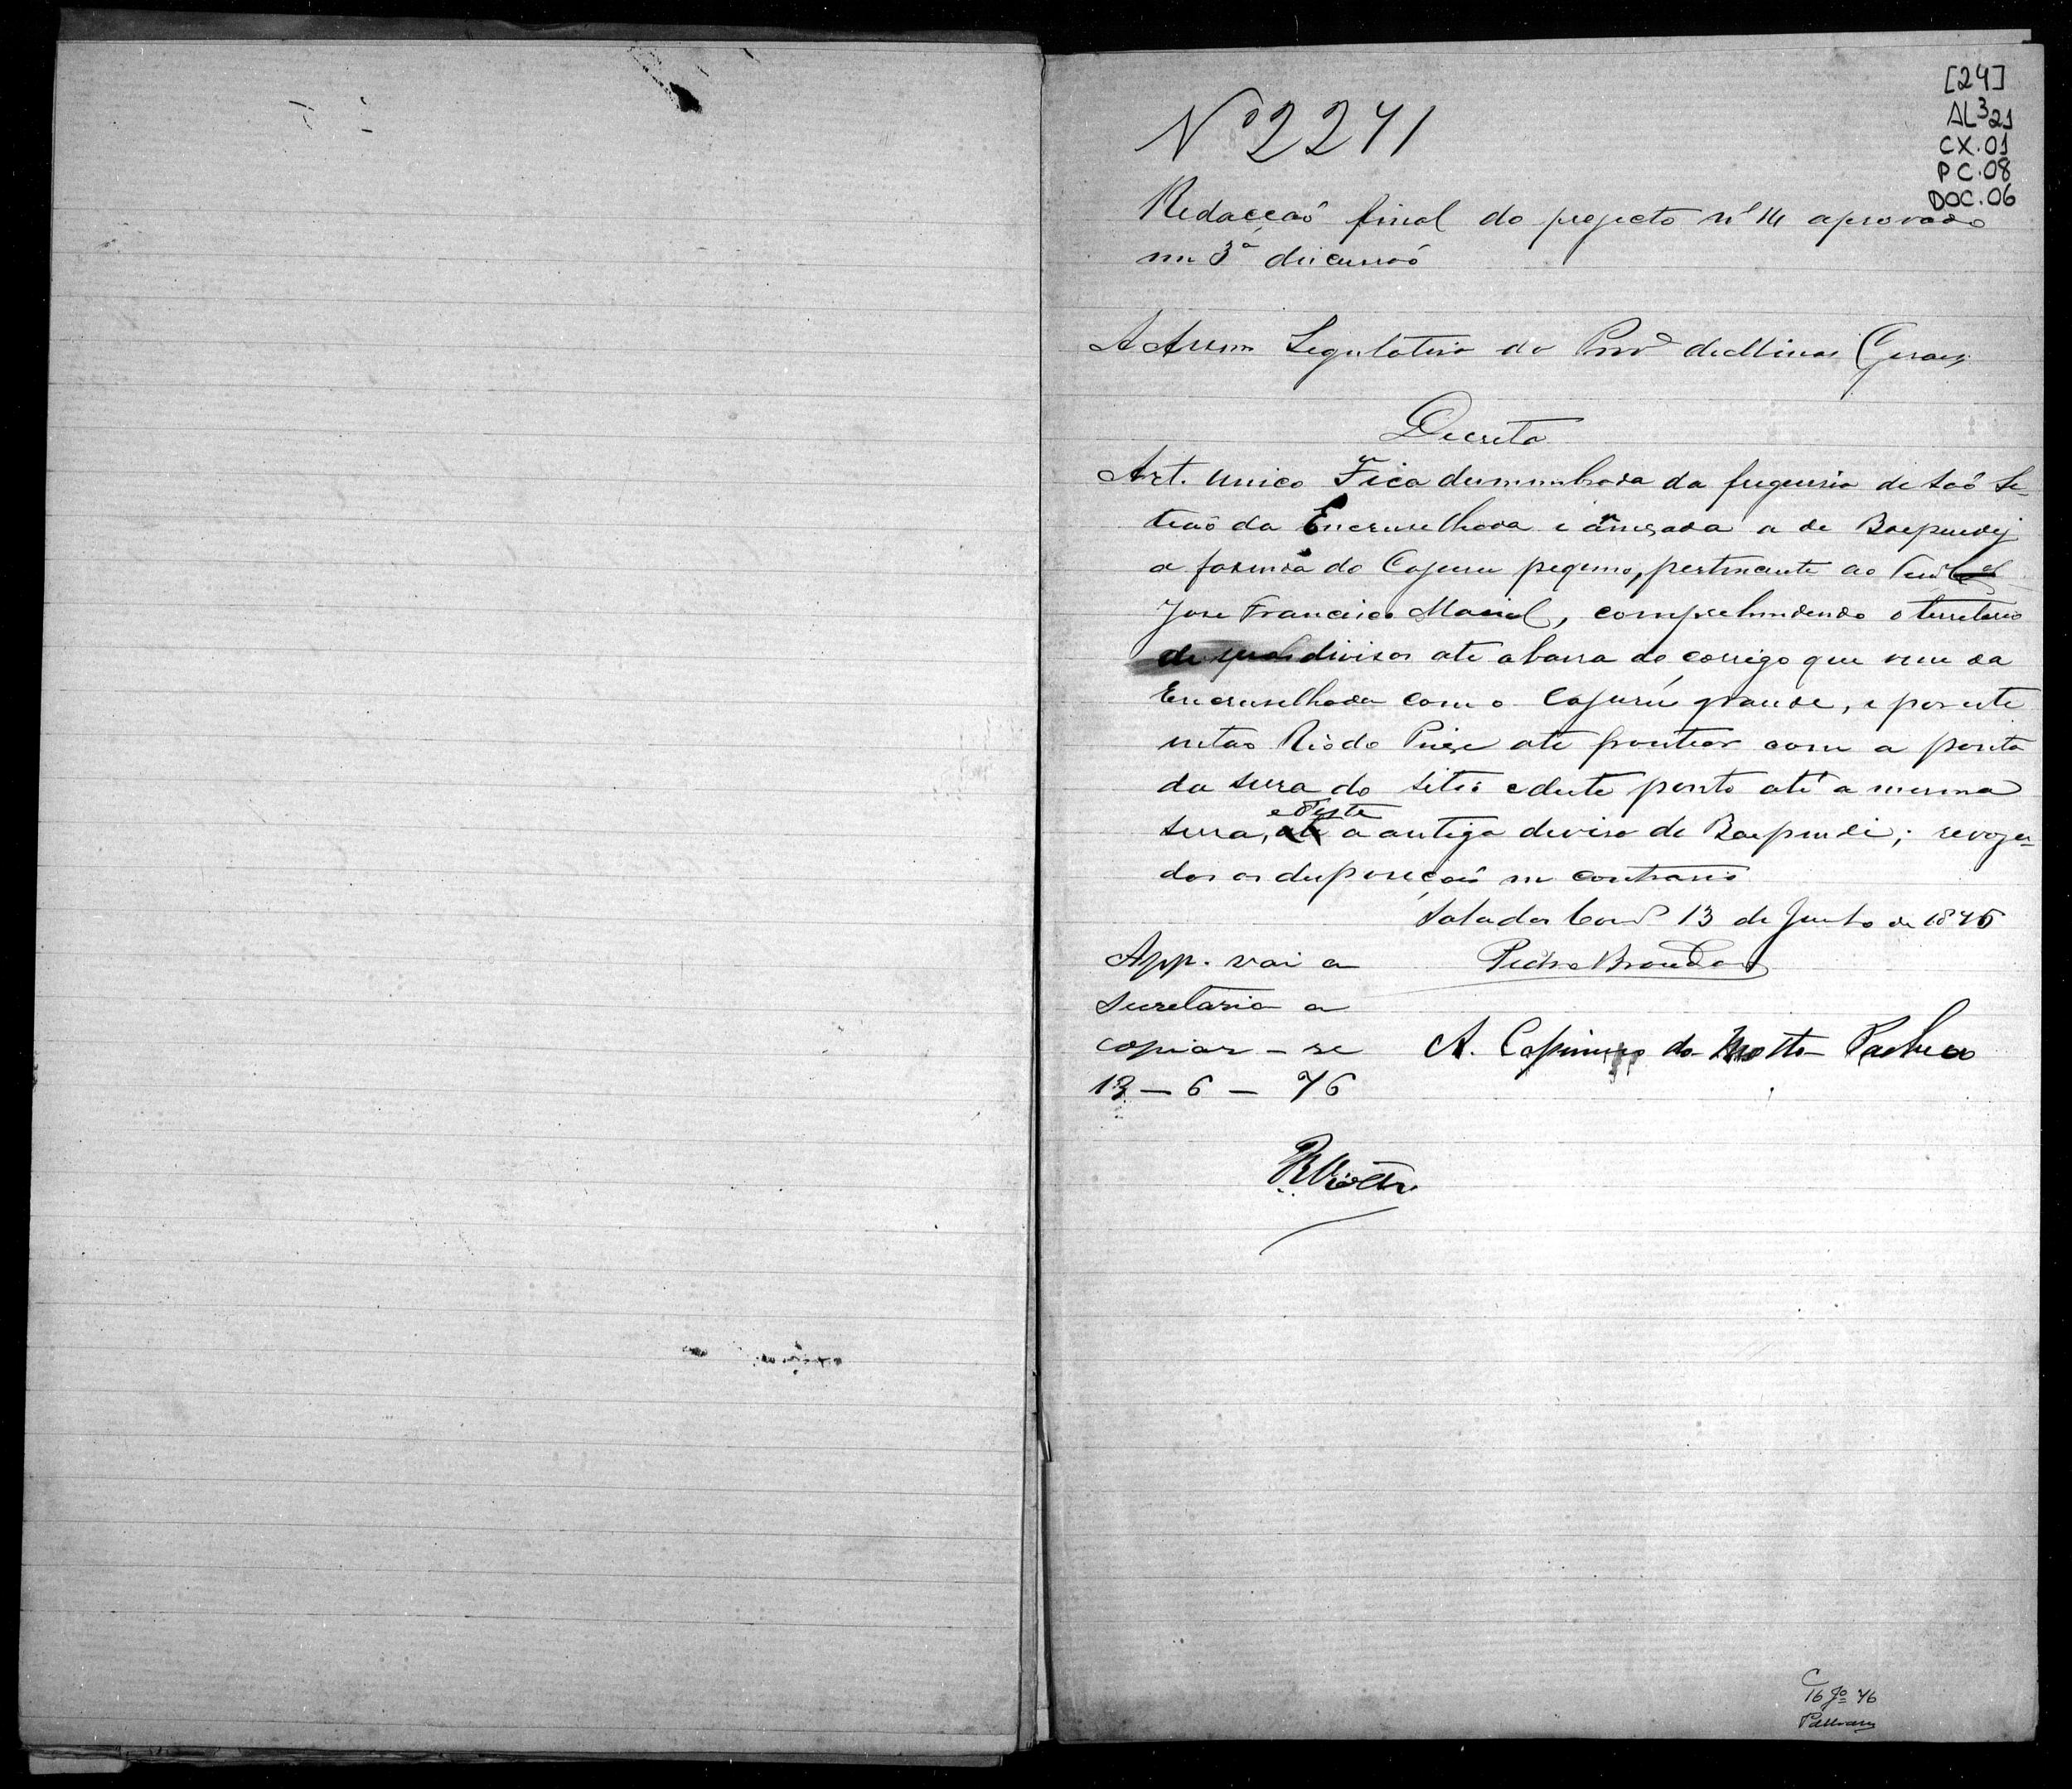 [24]
AL³21
CX.01
PC.08
DOC.06
Nº 2241
Redacção final do projecto nº 14 aprovado
em 3ª discussão
A Assem Legislativa da Prov de Minas Geraes,
Decreta
Art. unico Fica desmembrada da freguesia de Saõ Se-
tiaõ da Encruselhada e annexada a de Baependy
a fasenda do Cajuru pequeno, pertencente ao
Jose Francisco Maciel, comprehendendo o territorio
de suas divisas ate a barra do corrego que vem da
Encruselhada com o Cajurú grande, e por este
até frontear com a ponta
da serra do Sitio e deste ponto até a mesma
serra, e deste a antiga devisa de Baependi; revoga-
das as desposeções em contrario
Sala das Com 13 de Junho de 1876
App. vai a
Secretaria a
copiar-se
13-6-76
Pedro Brandão
A. Casimiro da Motta Pacheco
16 Jº 76